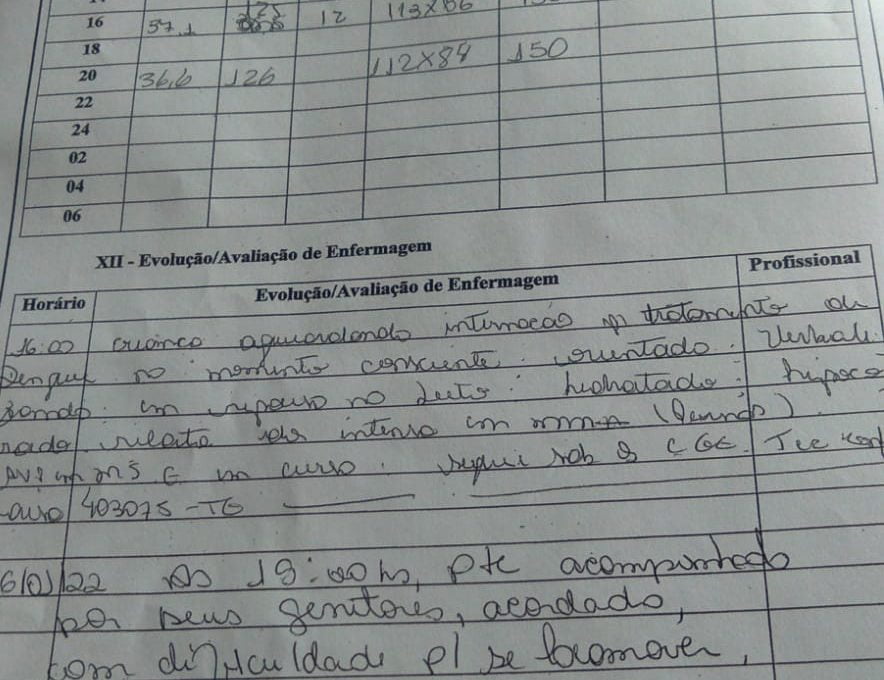 16 37,1 12 113x86
18
20 36,6 126 112x84 150
22
24
02
04
06
XII - Evolução/Avaliação de Enfermagem
Horário Evolução/Avaliação de Enfermagem Profissional
16:00 criança aguardando internação p/ tratamento de
Dengue no momento consciente. orientado. Verbali
zando. em repouso no leito. hidratado. hipoco
rado, relata intensa em
AVP em MSE em curso. segue sob CGE. Tec
403075-TE
6/01/22 As 19:00hs, pte acompanhado
por seus genitores, acordado,
com dificuldade p/ se locomover,